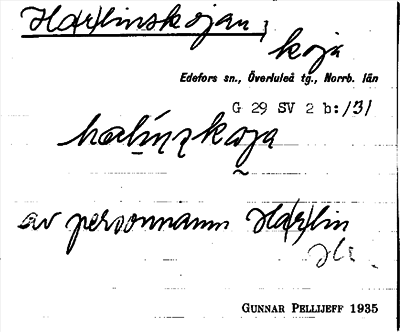 Ha(r)linskojan,
koja
Edefors sn., Överluleå tg., Norrb. län
G 29 SV 2 b: /3/
av personnamn Ha(r)lin
GUNNAR PELLIJEFF 1935